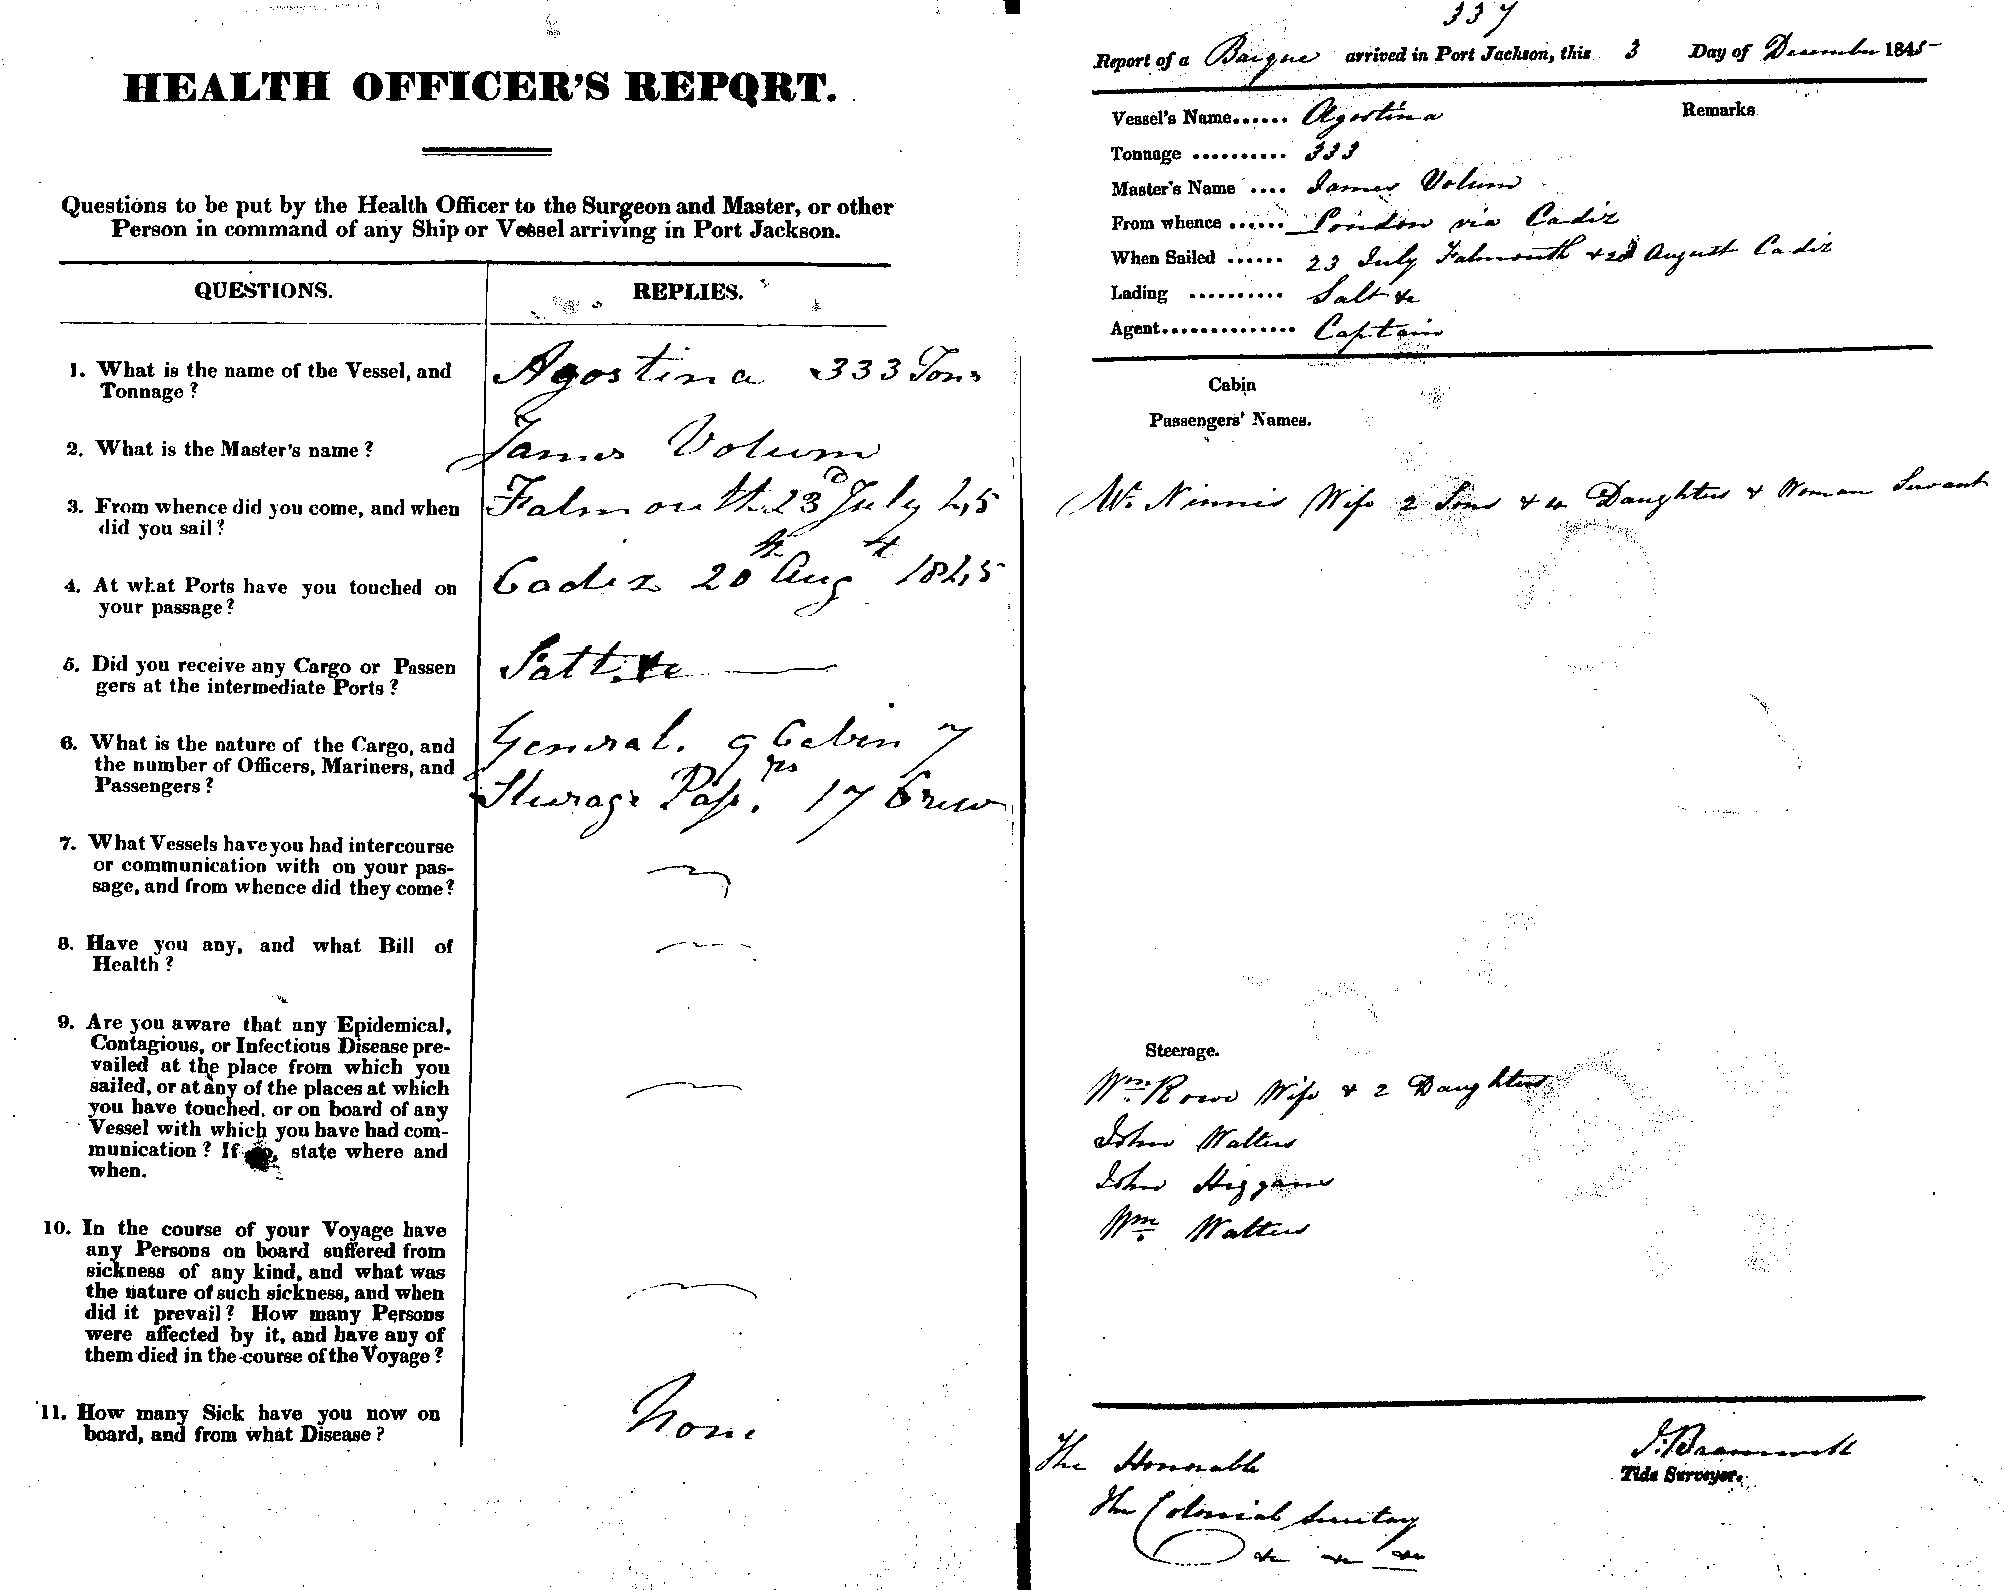 HEALTH OFFICER'S REPORT.
Questions to be put by the Health Officer to the Surgeon and Master, or other
Person in command of any Ship or Vessel arriving in Port Jackson.
QUESTIONS.
REPLIES.
1. What is the name of the Vessel, and
Tonnage ?
Agostina 333 Tons
2. What is the Master's name ?
James Volum
3. From whence did you come, and when
did you sail ?
Falmouth 23d July 45
4. At what Ports have you touched on
your passage ?
Cadiz 20th Augt 1845
5. Did you receive any Cargo or Passen
gers at the intermediate Ports ?
Salt &c
6. What is the nature of the Cargo, and
the number of Officers, Mariners, and
Passengers ?
General. 9 Cabin 7
Steerage Passrs. 17 Crew
7. What Vessels have you had intercourse
or communication with on your pas-
sage, and from whence did they come ?
8. Have you any, and what Bill of
Health ?
9. Are you aware that any Epidemical,
Contagious, or Infectious Disease pre-
vailed at the place from which you
sailed, or at any of the places at which
you have touched, or on board of any
Vessel with which you have had com-
munication ? If so, state where and
when.
10. In the course of your Voyage have
any Persons on board suffered from
sickness of any kind, and what was
the nature of such sickness, and when
did it prevail ? How many Persons
were affected by it, and have any of
them died in the course of the Voyage ?
11. How many Sick have you now on
board, and from what Disease ?
None
337
Report of a Barque arrived in Port Jackson, this 3 Day of December 1845
Vessel's Name...... Agostina
Remarks
Tonnage .......... 333
Master's Name .... James Volum
From whence ...... London via Cadiz
When Sailed ...... 23 July Falmouth & 20 August Cadiz
Lading .......... Salt &c
Agent.............. Captain
Cabin
Passengers' Names.
Mr. Ninnis Wife 2 Sons & 4 Daughters & Woman Servant
Steerage.
Wm. Rowe Wife & 2 Daughters
John Walters
John Higgans
Wm. Walters
J. Bramwell
Tide Surveyor.
The Honorable
The Colonial Secretary
&c &c &c